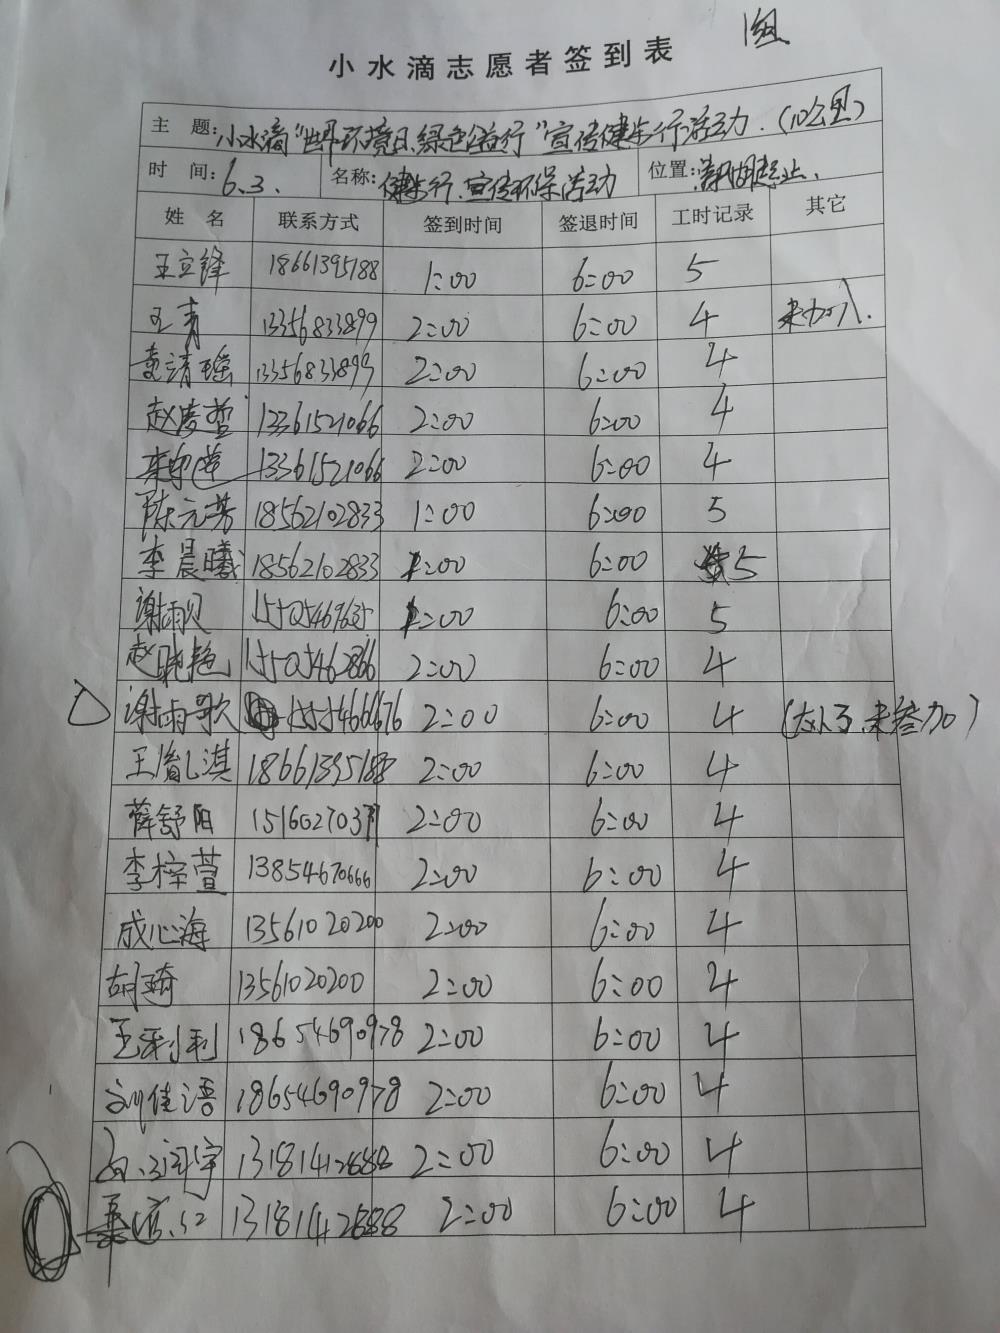 1组
小水滴志愿者签到表
主 题: 小水滴"世界环境日,绿色益行"宣传健步行活动.(10公里)
时 间: 6.3. 名称: 健步行.宣传环保活动 位置: 清风湖
姓 名 联系方式 签到时间 签退时间 工时记录 其它
王立锋 18661395188 1:00 6:00 5
王青 13356833899 2:00 6:00 4 未加入.
袁靖瑶 13356833899 2:00 6:00 4
赵彦哲 13361521066 2:00 6:00 4
13361521066 2:00 6:00 4
陈元芳 18562102833 1:00 6:00 5
李晨曦 18562102833 1:00 6:00 5
谢雨贝 15505469635 1:00 6:00 5
赵艳艳 15505462866 2:00 6:00 4
谢雨歌 2:00 6:00 4 未参加)
王胤淇 18661395188 2:00 6:00 4
薛舒阳 2:00 6:00 4
李梓萱 13854670666 2:00 6:00 4
成心海 13561020200 2:00 6:00 4
胡琦 13561020200 2:00 6:00 4
王利利 18654690978 2:00 6:00 4
刘佳语 18654690978 2:00 6:00 4
13181412888 2:00 6:00 4
13181142888 2:00 6:00 4